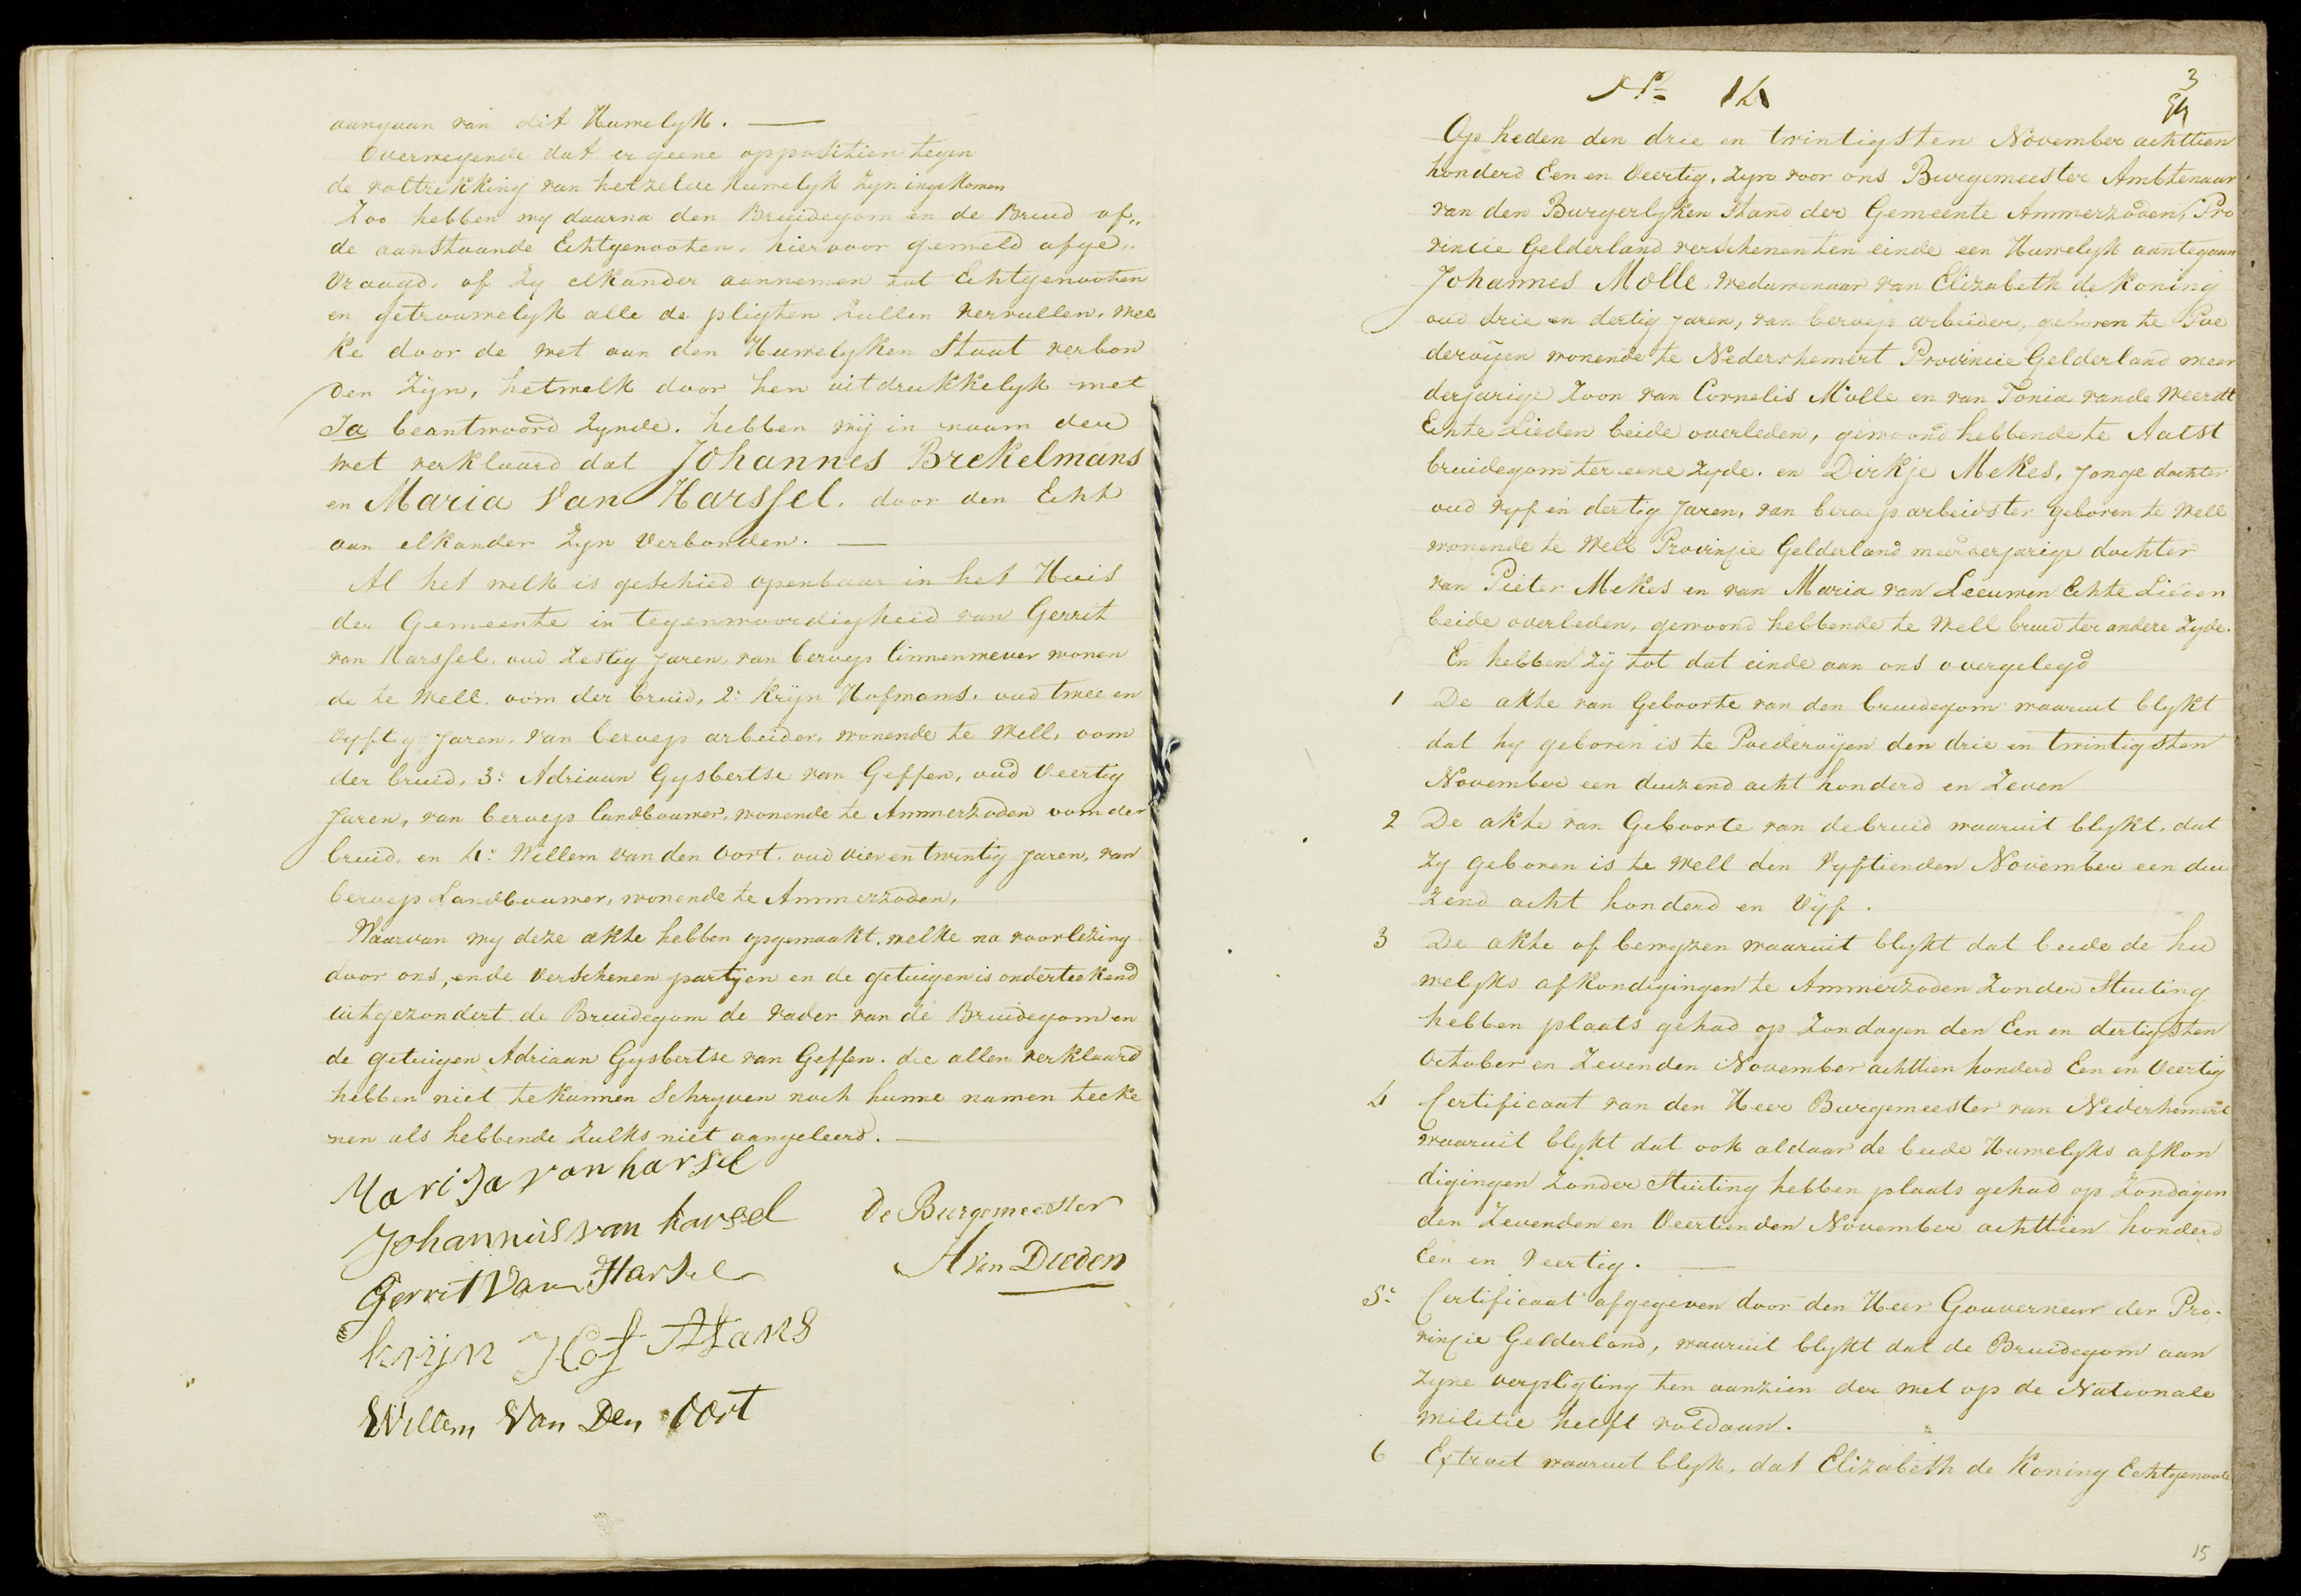 aangaan van dit Huwelyk. —
Overwegende dat er geene oppositien tegen
de voltrekking van hetzelve Huwelyk zyn ingekomen
Zoo hebben wy daarna den Bruidegom en de Bruid of„
de aanstaande Echtgenooten, hiervoor gemeld afge„
vraagd, of zy elkander aannemen tot Echtgenooten
en getrouwelyk alle de pligten zullen vervullen, wel
ke door de wet aan den Huwelyken Staat verbon
den zijn, hetwelk door hen uitdrukkelyk met
Ja beantwoord zynde. hebben wij in naam der
wet verklaard dat Johannes Brekelmans
en Maria Van Harssel. door den Echt
aan elkander zyn verbonden. —
Al het welk is geschied openbaar in het Huis
der Gemeente in tegenwoordigheid van Gerrit
van Harssel. oud Zestig Jaren, van beroep linnenwever wonen
de te Well. oom der bruid, 2: Krijn Hofmans. oud twee en
vyftig Jaren, van beroep arbeider, wonende te Well, oom
der bruid, 3: Adriaan Gysbertse van Geffen, oud veertig
Jaren, van beroep landbouwer, wonende te Ammerzoden oom der
bruid, en 4: Willem van den Oort. oud vier en twintig Jaren, van
beroep Landbouwer, wonende te Ammerzoden,
Waarvan wy deze akte hebben opgemaakt, welke na voorlezing
door ons, en de verschenen partyen en de getuigen is onderteekend
uitgezondert de Bruidegom de vader van de Bruidegom en
de getuigen Adriaan Gysbertse van Geffen. die allen verklaard
hebben niet te kunnen Schryven noch hunne namen teeke
nen als hebbende zulks niet aangeleerd. —
Marija van harsel
Johannis van harsel
De Burgemeester
Gerrit Van Harsel
A Van Dieden
krijn Hof Mans
Willem Van Den Oort
No 14
3
Op heden den drie en twintigsten November achttien
honderd Een en Veertig, zyn voor ons Burgemeester Ambtenaar
van den Burgerlyken Stand der Gemeente Ammerzoden, Pro
vincie Gelderland verschenen ten einde een Huwelyk aantegaan
Johannes Molle, weduwenaar van Elizabeth de Koning
oud drie en dertig Jaren, van beroep arbeider, geboren te Poe
deroijen wonende te Nederhemert Provincie Gelderland meer
derjarige Zoon van Cornelis Molle en van Tonia van de Weerdt
Echte Lieden beide overleden, gewoond hebbende te Aalst
bruidegom ter eene Zyde. en Dirkje Mekes, Jonge dochter
oud vyf en dertig Jaren, van beroep arbeidster geboren te Well
wonende te Well Provinçie Gelderland meerderjarige dochter
van Pieter Mekes en van Maria van Leeuwen Echte Lieden
beide overleden, gewoond hebbende te Well bruid ter andere Zyde.
En hebben zij tot dat einde aan ons overgelegd
1 De akte van Geboorte van den bruidegom waaruit blykt
dat hy geboren is te Poederoijen den drie en twintigsten
November een duizend acht honderd en Zeven
2 De akte van Geboorte van de bruid waaruit blykt, dat
zy geboren is te Well den vyftienden November een dui
zend acht honderd en Vijf.
3 De akte of bewyzen waaruit blykt dat beide de hu
welyks afkondigingen te Ammerzoden Zonder Stuiting
hebben plaats gehad op Zondagen den Een en dertigsten
October en Zevenden November achttien honderd Een en Veertig
4 Certificaat van den Heer Burgemeester van Nederhemert
waaruit blykt dat ook aldaar de beide Huwelyks afkon
digingen Zonder Stuiting hebben plaats gehad op Zondagen
den Zevenden en Veertienden November achttien honderd
Een en Veertig. —
5: Certificaat afgegeven door den Heer Gouverneur der Pro-
vinçie Gelderland, waaruit blykt dat de Bruidegom aan
zyne verpligting ten aanzien der wet op de Nationale
militie heeft voldaan.
6 Extract waaruit blyk, dat Elizabeth de Koning Echtgenoote
15